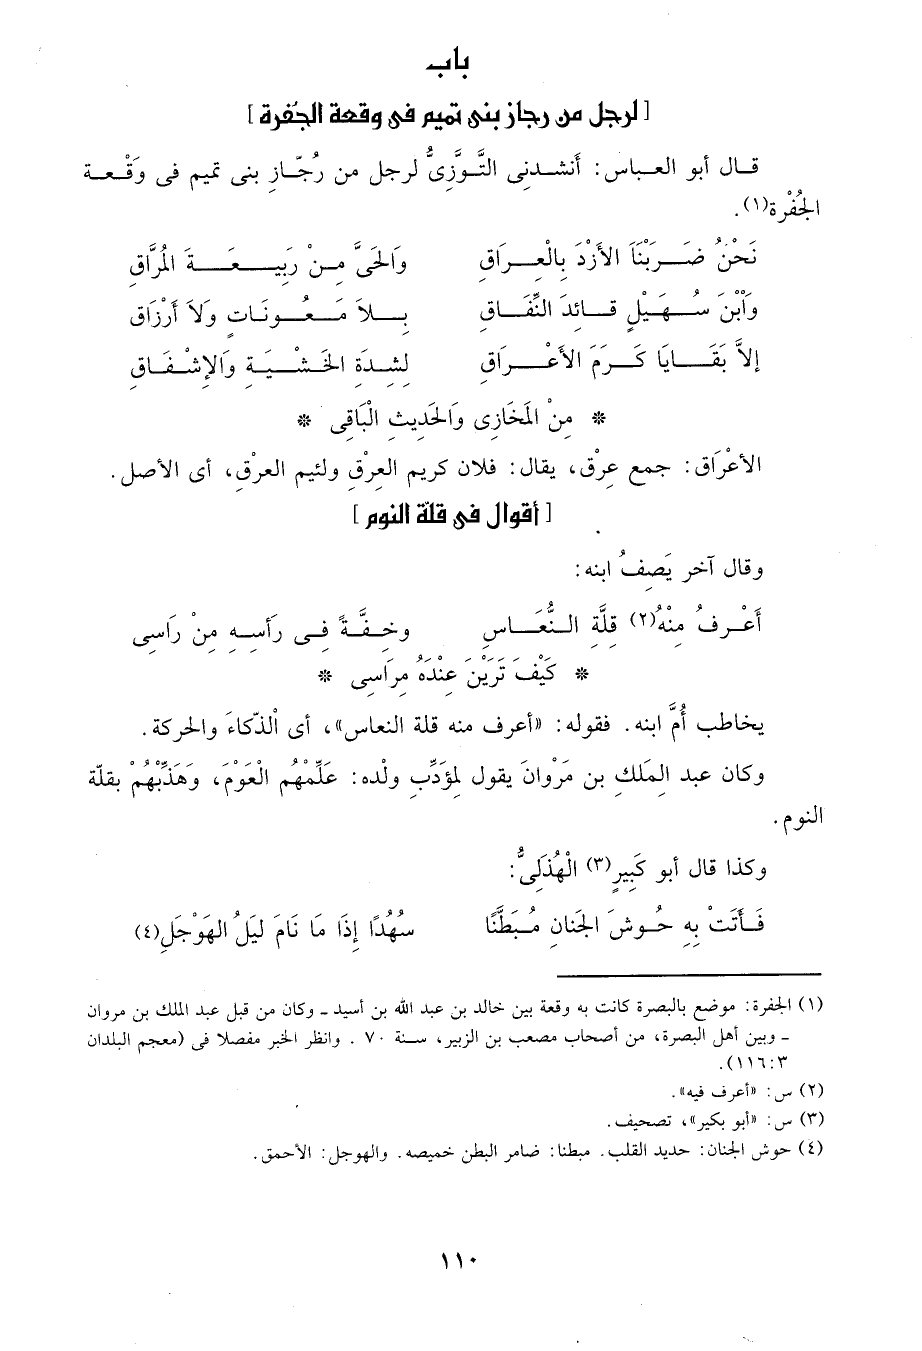 باب
[ لرجل من رجاز بنى تميم فى وقعة الجُفرة ]
قال أبو العباس: أنشدنى التَّوَّزِىُّ لرجل من رُجّازِ بنى تميم فى وَقْعة
الجُفْرة(١).
نَحْنُ ضَرَبْنَا الأَزْدَ بِالْعِرَاقِ وَالحَىَّ مِنْ رَبِيعَةَ المُرَّاقِ
وَابْنَ سُهَيْلٍ قَائِدَ النِّفَاقِ بِلاَ مَعُونَاتٍ وَلاَ أَرْزَاقِ
إلاَّ بَقَايَا كَرَمَ الأَعْرَاقِ لِشِدَةِ الخَشْيَةِ وَالإِشْفَاقِ
* مِنْ المَخَازِى وَالحَدِيثِ الْبَاقِى *
الأعْرَاق: جمع عِرْق، يقال: فلان كريم العِرْقِ ولئيم العِرْق، أى الأصل.
[ أقوال فى قلة النوم ]
وقال آخر يَصِفُ ابنه:
أَعْرِفُ مِنْهُ(٢) قِلَّةَ النُّعَاسِ وخِفَّةً فِى رَأسِهِ مِنْ رَاسِى
* كَيْفَ تَرَيْنَ عِنْدَهُ مِرَاسِى *
يخاطب أُمَّ ابنه. فقوله: «أعرف منه قلة النعاس»، أى الذّكاءَ والحركة.
وكان عبد المَلِك بن مَرْوانَ يقول لِمؤَدِّبِ ولْده: عَلِّمْهُم الْعَوْمَ، وَهَذِّبْهُمْ بِقلّة
النوم.
وكذا قال أبو كَبِيرٍ(٣) الْهُذَلِىُّ:
فَأَتَتْ بِهِ حُوشَ الجَنانِ مُبَطَّنًا سُهُدًا إِذَا مَا نَامَ لَيْلُ الهَوْجَلِ(٤)
(١) الجفرة: موضع بالبصرة كانت به وقعة بين خالد بن عبد الله بن أسيد ـ وكان من قبل عبد الملك بن مروان
ـ وبين أهل البصرة، من أصحاب مصعب بن الزبير، سنة ٧٠ . وانظر الخبر مفصلا فى (معجم البلدان
٣:١١٦).
(٢) س: «أعرف فيه».
(٣) س: «أبو بكير»، تصحيف.
(٤) حوش الجنان: حديد القلب. مبطنا: ضامر البطن خميصه. والهوجل: الأحمق.
١١٠